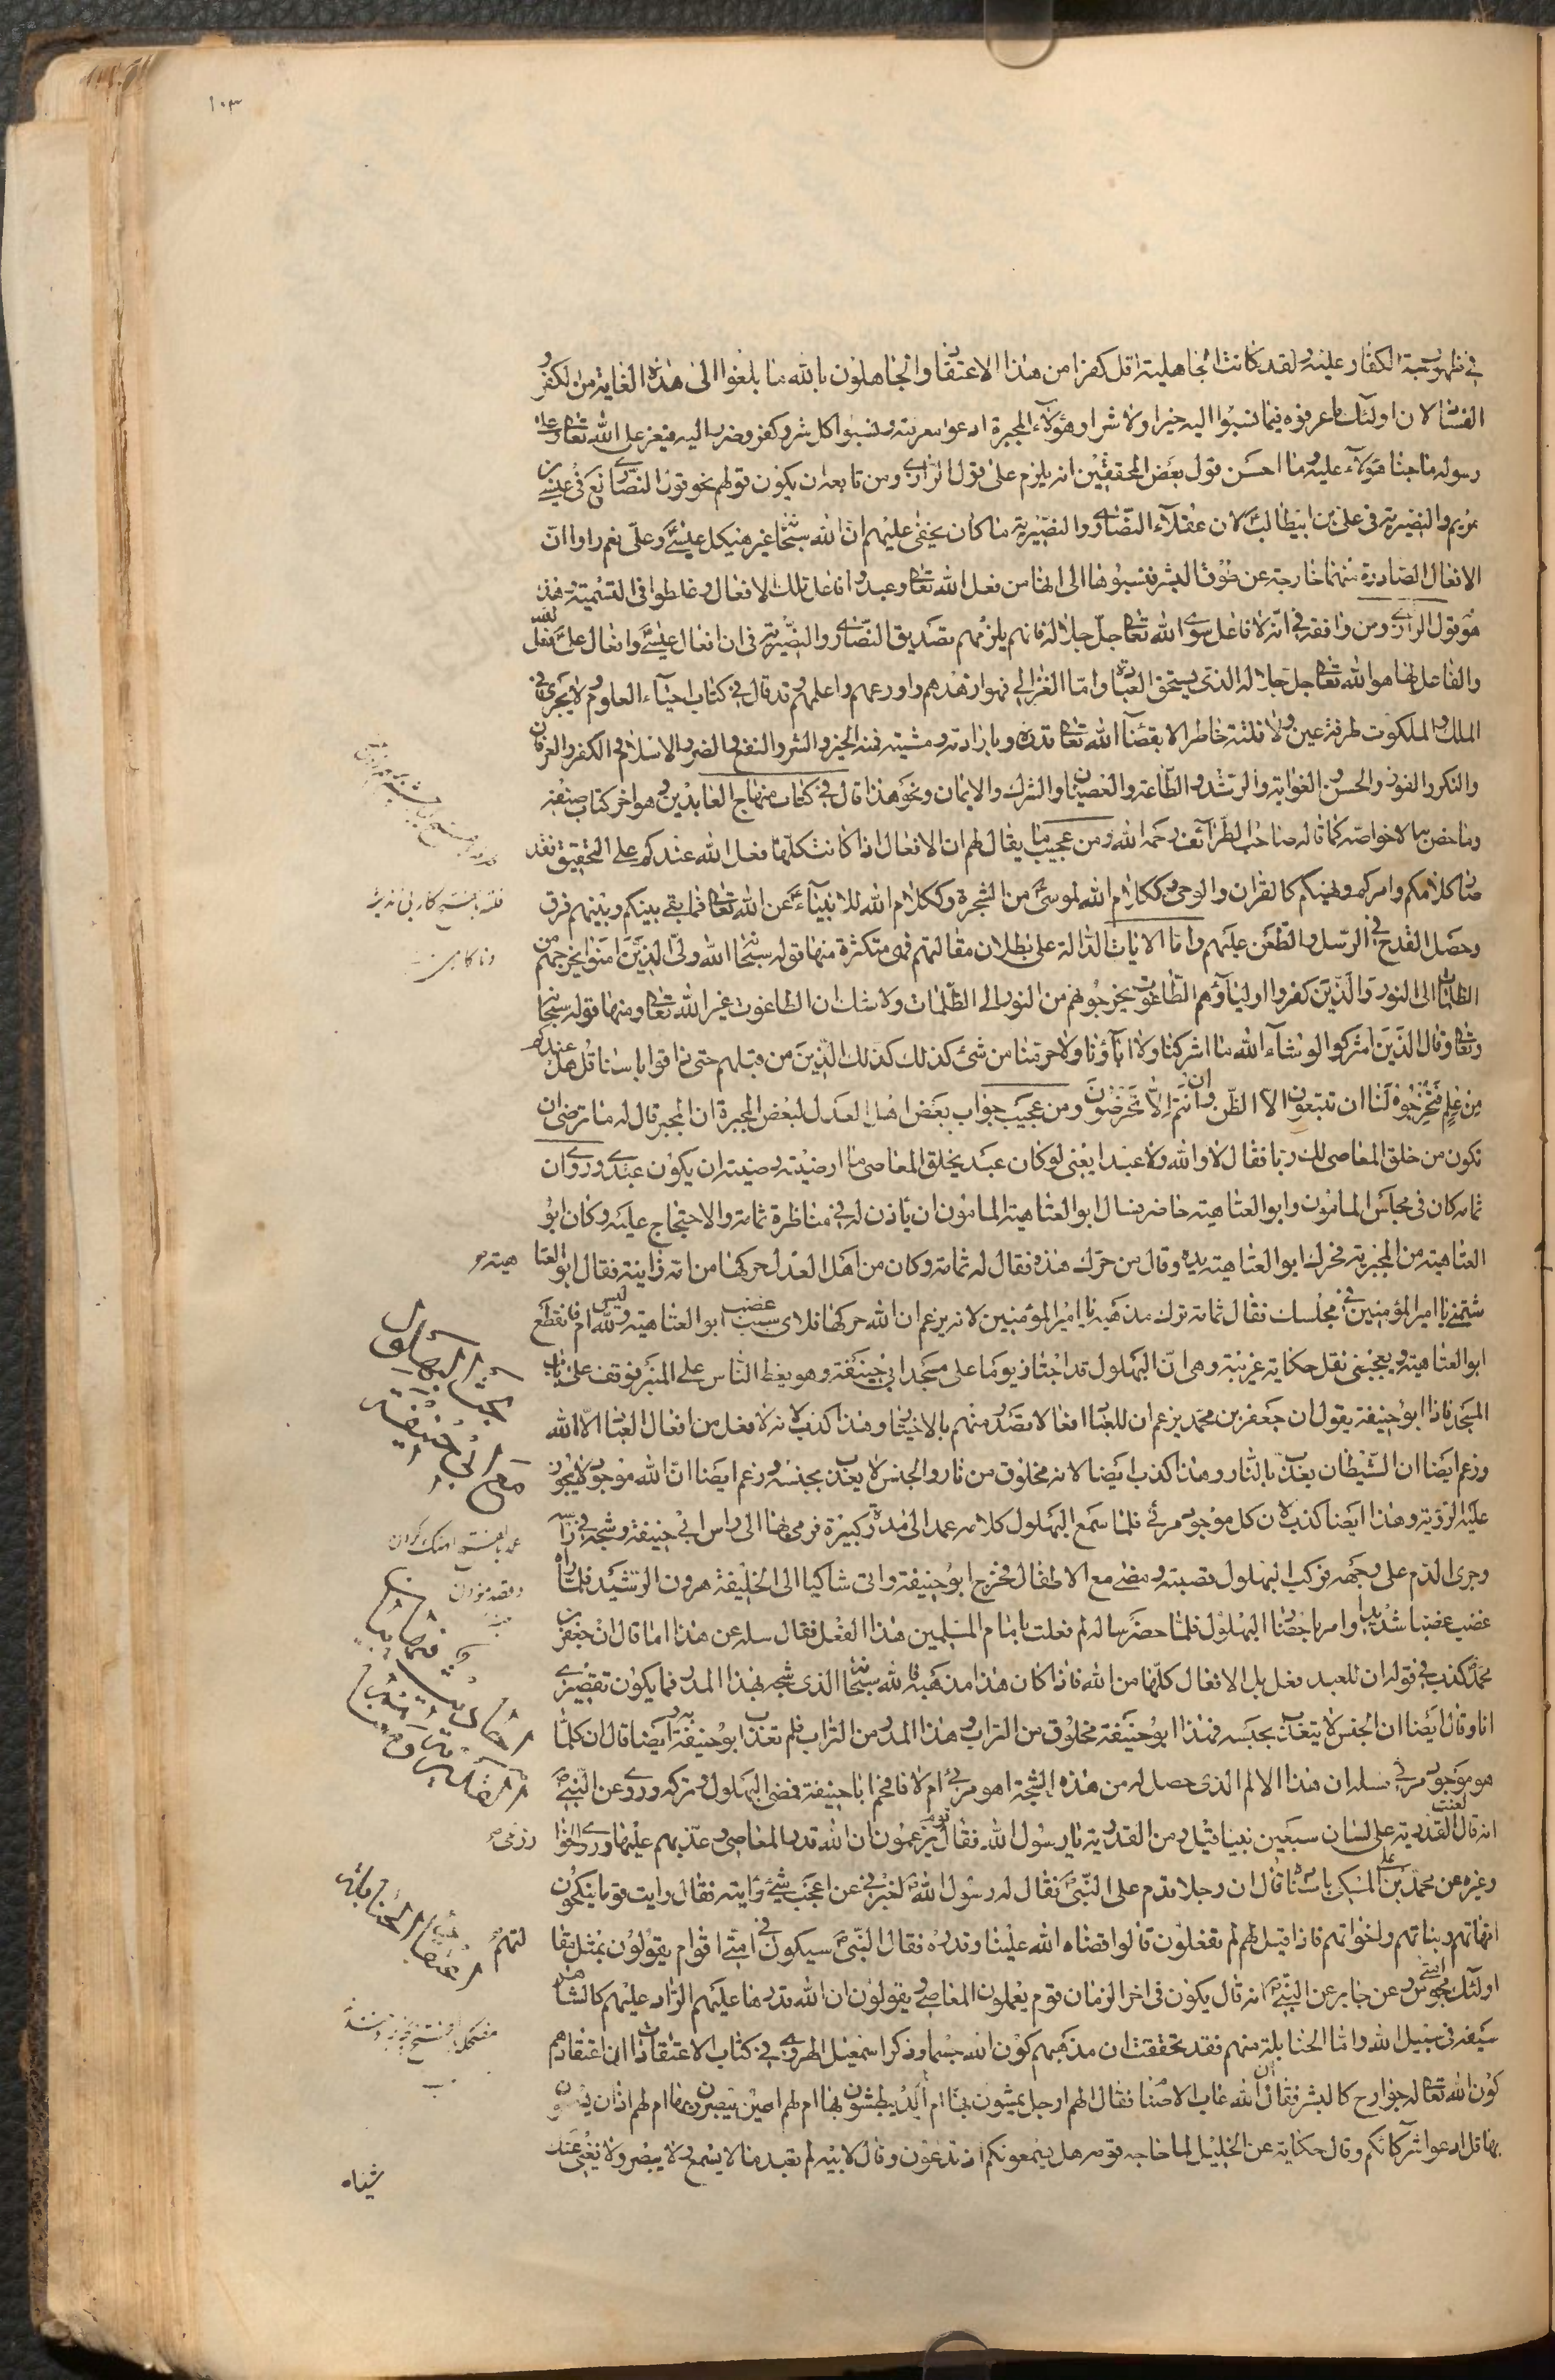 ١٠٣
في ظهور شبهة الكفار عليه ولقد كانت الجاهلية اقل كفرا من هذا الاعتقاد والجاهلون بالله ما بلغوا الى هذه الغاية من الكفر و
لان اولئك ما عرفوه فيما نسبوا اليه خيرا ولا شرا وهؤلاء المجبرة ادعوا معرفته ونسبوا كل شر وكفر وضرر اليه فيعز على الله تعالى وعلى
رسوله ما جنا هؤلاء عليه وما احسن قول بعض المحققين انه يلزم على قول الرازي ومن تابعه ان يكون قولهم نحو قول النصارى في عيسى بن
مريم والنصيرية في علي بن ابيطالب لان عقلاء النصارى والنصيرية ما كان يخفى عليهم ان الله سبحانه غير هيكل عيسى وعلي نعم راوا ان
الافعال الصادرة منهما خارجة عن طوق البشر فنسبوها الى انها من فعل الله تعالى وعبدوا فاعل تلك الافعال وغلطوا في التسمية وهذا
هو قول الرازي ومن وافقه في انه لا فاعل سوى الله تعالى جل جلاله فانهم يلزمهم تصديق النصارى والنصيرية في ان افعال عيسى وافعال علي فعل الله
والفاعل لها هو الله تعالى جل جلاله الذي يستحق العبادة واما الغزالي فهو ازهدهم واورعهم واعلمهم قد قال في كتاب احياء العلوم لا يجري في
الملك والملكوت طرفة عين ولا فلتة خاطر الا بقضاء الله تعالى وقدره وبارادته ومشيته فمنه الخير والشر والنفع والضر والاسلام والكفر والعرفان
والنكر والفوز والخسر والغواية والرشد والطاعة والعصيان والشرك والايمان ونحو هذا قال في كتاب منهاج العابدين وهو اخر كتاب صنفه
وما خص بها الا خواصه كما قاله صاحب الطرائف رحمه الله ومن عجيب ما يقال لهم ان الافعال اذا كانت كلها فعل الله عندكم على التحقيق فقد
صار كلامكم وامركم ونهيكم كالقران والوحي وككلام الله لموسى من الشجرة وككلام الله للانبياء عن الله تعالى فما بقي بينكم وبينهم فرق
وحصل القدح في الرسل والطعن عليهم واما الايات الدالة على بطلان مقالتهم فهي متكثرة منها قوله سبحانه الله ولي الذين امنوا يخرجهم من
الظلمات الى النور والذين كفروا اولياؤهم الطاغوت يخرجونهم من النور الى الظلمات ولا شك ان الطاغوت غير الله تعالى ومنها قوله سبحانه
وتعالى وقال الذين اشركوا لو شاء الله ما اشركنا ولا اباؤنا ولا حرمنا من شئ كذلك كذلك الذين من قبلهم حتى ذاقوا باسنا قل هل عندكم
من علم فتخرجوه لنا ان تتبعون الا الظن وان انتم الا تخرصون ومن عجيب جواب بعض اهل العدل لبعض المجبرة ان المجبر قال له ما ترضى ان
تكون من خلق المعاصي لك ربا فقال لا والله ولا عبدا يعني لو كان عبد يخلق المعاصي ما ارضيته وضيته ان يكون عبدي وروي ان
ثمامة كان في مجلس المامون وابو العتاهية حاضر فسال ابو العتاهية المامون ان ياذن له في مناظرة ثمامة والاحتجاج عليه وكان ابو
العتاهية من المجبرية فحرك ابو العتاهية يده وقال من حرك هذه فقال له ثمامة وكان من اهل العدل حركها من امه زانية فقال ابو العتا هية
شتمني يا امير المؤمنين في مجلسك فقال ثمامة ترك مذهبه يا امير المؤمنين لانه يزعم ان الله حركها فلاي سبب غضب ابو العتاهية وليس لله ام فانقطع
ابو العتاهية ويعجبني نقل حكاية غريبة وهي ان البهلول قد اجتاز يوما على مسجد ابي حنيفة وهو يعظ الناس على المنبر فوقف على باب
المسجد فاذا ابو حنيفة يقول ان جعفر بن محمد يزعم ان للعباد افعالا تصدر منهم بالاختيار وهذا كذب لانه لا فعل من افعال العباد الا لله
وزعم ايضا ان الشيطان يعذب بالنار وهذا كذب ايضا لانه مخلوق من نار والجنس لا يعذب بجنسه وزعم ايضا ان الله موجود لا يجوز
عليه الرؤية وهذا ايضا كذب لان كل موجود مرئي فلما سمع البهلول كلامه عمد الى مدرة كبيرة فرمى بها الى راس ابي حنيفة وشجه في راسه
وجرى الدم على وجهه فركب البهلول قصبته ومضى مع الاطفال فخرج ابو حنيفة واتى شاكيا الى الخليفة هرون الرشيد فلما راه
غضب غضبا شديدا وامر باحضار البهلول فلما حضر ساله لم فعلت بامام المسلمين هذا الفعل فقال سله عن هذا اما قال ان جعفر بن
محمد كذب في قوله ان للعبد فعل بل الافعال كلها من الله فاذا كان هذا مذهبه فالله سبحانه الذي شجه بهذا المدر فما يكون تقصيري
انا وقال ايضا ان الجنس لا يتعذب بجنسه فهذا ابو حنيفة مخلوق من التراب وهذا المدر من التراب فلم تعذب به وايضا قال ان كلما
هو موجود مرئي سله ان هذا الالم الذي حصل له من هذه الشجة اهو مرئي ام لا فافحم ابا حنيفة فمضى البهلول وتركه وروي عن النبي ص
انه قال لعنت القدرية على لسان سبعين نبيا فقيل ومن القدرية يا رسول الله فقال قوم يزعمون ان الله قدر المعاصي وعذبهم عليها وروى الخوا رزمي
وغيره عن محمد بن علي المكي باسناده قال ان رجلا قدم على النبي ص فقال له رسول الله ص اخبرني عن اعجب شئ رايته فقال رايت قوما ينكحون
امهاتهم وبناتهم واخواتهم فاذا قيل لهم لم تفعلون قالوا قضاه الله علينا وقدره فقال النبي ص سيكون في امتي اقوام يقولون بمثل مقا لتهم
اولئك مجوس امتي وعن جابر عن النبي ص انه قال يكون في اخر الزمان قوم يعملون المعاصي ويقولون ان الله قدرها عليهم الراد عليهم كالشاهر
سيفه في سبيل الله واما الحنابلة منهم فقد تحققت ان مذهبهم كون الله جسما وذكر اسمعيل الهروي في كتاب الاعتقاد ان اعتقادهم
كون الله تعالى له جوارح كالبشر فقال ان الله عاب الاصنام فقال الهم ارجل يمشون بها ام ايد يبطشون بها ام لهم اعين يبصرون بها ام لهم اذان يسمعون
بها قل ادعوا شركائكم وقال حكاية عن الخليل لما حاجه قومه هل يسمعونكم اذ تدعون وقال لابيه لم تعبد ما لا يسمع ولا يبصر ولا يغني عنك
شيئاه
مع ابي حنيفة